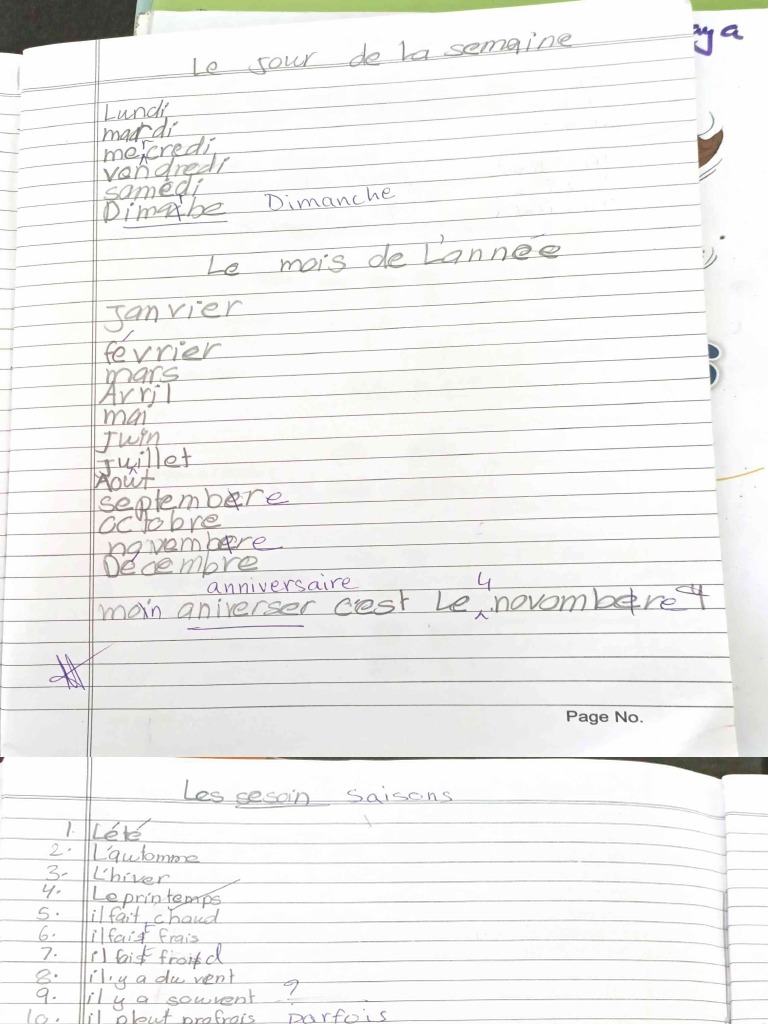 aya
Le jour de la semaine
Lundi
mardi
mercredi
vendredi
samedi
Dimanbe Dimanche
Le mois de L'année
janvier
février
mars
Avril
mai
Juin
juillet
Août
septembre
octobre
novembre
Décembre
anniversaire
4
moin aniverser c'est Le novombre 4
Page No.
Les sesoin saisons
1. L'été
2. L'automne
3. L'hiver
4. Le printemps
5. il fait chaud
6. il fait frais
7. il fait froid
8. il y a du vent
9. il y a souvent ?
10. il pleut profrais parfois